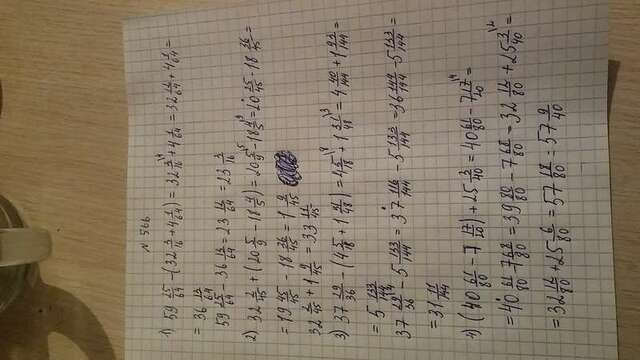 № 566
1) 59 25/64 - (32 3/16 + 4 1/64) = 32 3/16 + 4 1/64 = 32 12/64 + 4 1/64 =
= 36 13/64
59 25/64 - 36 13/64 = 23 12/64 = 23 3/16
2) 32 2/45 + (20 5/9 - 18 4/5) = 20 5/9 - 18 4/5 = 20 25/45 - 18 36/45 =
= 19 45/45 - 18 36/45 = 1 9/45
32 2/45 + 1 9/45 = 33 11/45
3) 37 29/36 - (4 5/18 + 1 31/48) = 4 5/18 + 1 31/48 = 4 40/144 + 1 93/144 =
= 5 133/144
37 29/36 - 5 133/144 = 37 116/144 - 5 133/144 = 36 - 5 133/144
= 31 11/144
4) (40 61/80 - 7 17/20) + 25 3/40 = 40 61/80 - 7 17/20
= 40 61/80 7 68/80 = 39 80/80 - 7 68/80 = 32 12/80 + 25 3/40 =
= 32 12/80 + 25 6/80 = 57 18/80 = 57 9/40